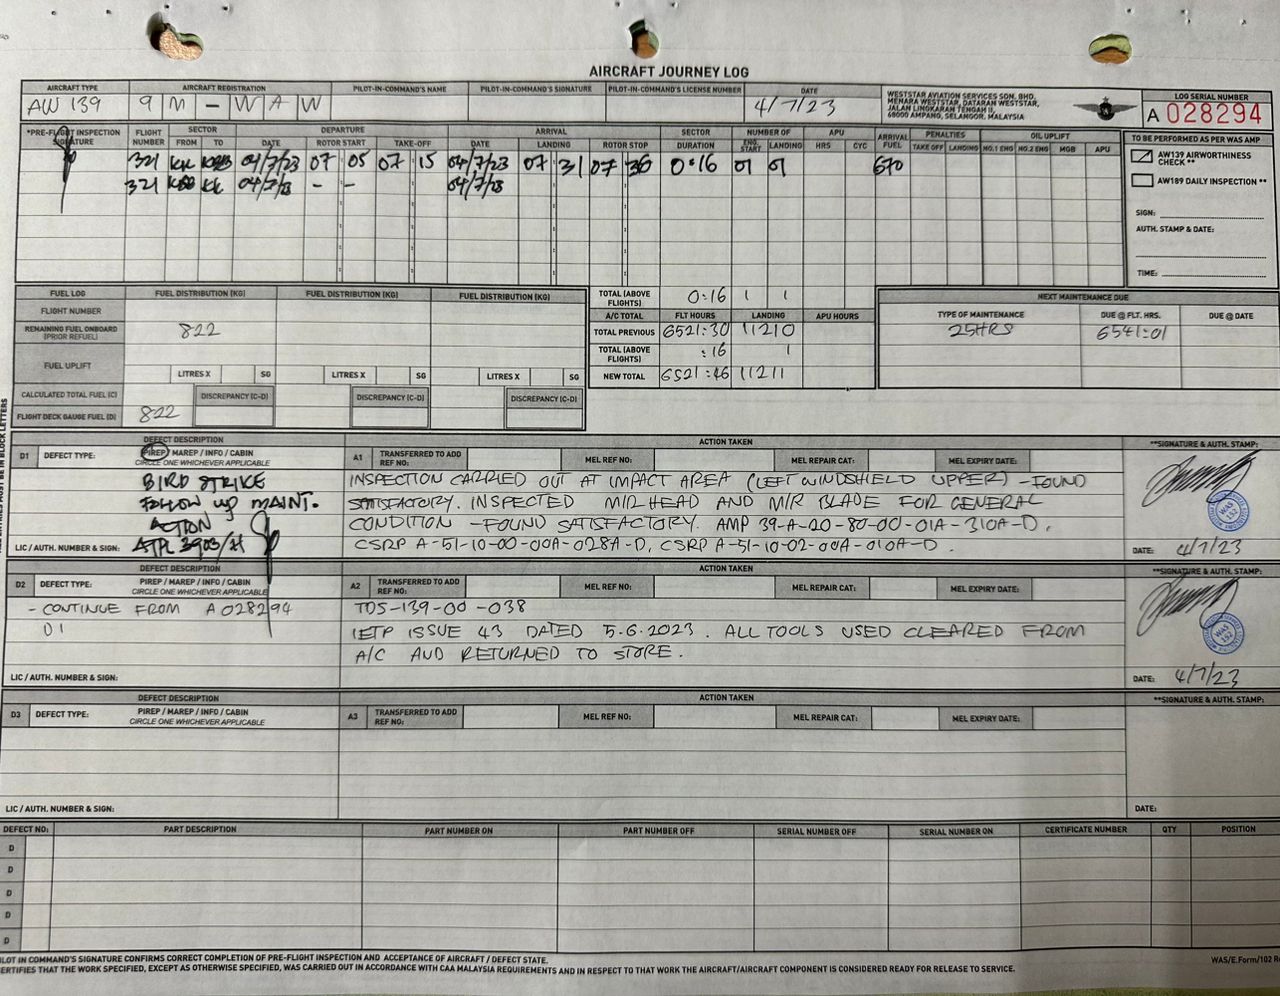 AIRCRAFT JOURNEY LOG
AIRCRAFT TYPE AIRCRAFT REGISTRATION PILOT-IN-COMMAND'S NAME PILOT-IN-COMMAND'S SIGNATURE PILOT-IN-COMMAND'S LICENSE NUMBER DATE
AW 139 9 M - W A W 4/7/23
WESTSTAR AVIATION SERVICES SDN. BHD.
MENARA WESTSTAR, DATARAN WESTSTAR,
JALAN LINGKARAN TENGAH II,
68000 AMPANG, SELANGOR, MALAYSIA
LOG SERIAL NUMBER
A 028294
*PRE-FLIGHT INSPECTION SIGNATURE FLIGHT NUMBER SECTOR DEPARTURE ARRIVAL SECTOR DURATION NUMBER OF APU ARRIVAL FUEL PENALTIES OIL UPLIFT
FROM TO DATE ROTOR START TAKE-OFF DATE LANDING ROTOR STOP ENG. START LANDING HRS CYC TAKE OFF LANDING NO.1 ENG NO.2 ENG MGB APU
321 KK 04/7/23 07 05 07 15 04/7/23 07 31 07 36 0:16 01 01 670
321 KK 04/7/23 - - 04/7/23
TO BE PERFORMED AS PER WAS AMP
AW139 AIRWORTHINESS CHECK **
AW189 DAILY INSPECTION **
SIGN:
AUTH. STAMP & DATE:
TIME:
FUEL LOG FUEL DISTRIBUTION (KG) FUEL DISTRIBUTION (KG) FUEL DISTRIBUTION (KG)
FLIGHT NUMBER
REMAINING FUEL ONBOARD (PRIOR REFUEL) 822
FUEL UPLIFT
LITRES X SG LITRES X SG LITRES X SG
CALCULATED TOTAL FUEL (C) DISCREPANCY (C-D) DISCREPANCY (C-D) DISCREPANCY (C-D)
FLIGHT DECK GAUGE FUEL (D) 822
TOTAL (ABOVE FLIGHTS) 0:16 1 1
A/C TOTAL FLT HOURS LANDING APU HOURS
TOTAL PREVIOUS 6521:30 11210
TOTAL (ABOVE FLIGHTS) :16 1
NEW TOTAL 6521:46 11211
NEXT MAINTENANCE DUE
TYPE OF MAINTENANCE DUE @ FLT. HRS. DUE @ DATE
25HRS 6541:01
DEFECT DESCRIPTION ACTION TAKEN **SIGNATURE & AUTH. STAMP:
D1 DEFECT TYPE: PIREP / MAREP / INFO / CABIN
CIRCLE ONE WHICHEVER APPLICABLE
A1 TRANSFERRED TO ADD REF NO: MEL REF NO: MEL REPAIR CAT: MEL EXPIRY DATE:
BIRD STRIKE INSPECTION CARRIED OUT AT IMPACT AREA (LEFT WINDSHIELD UPPER) - FOUND
FOLLOW UP MAINT. SATISFACTORY. INSPECTED M/R HEAD AND M/R BLADE FOR GENERAL
ACTION CONDITION - FOUND SATISFACTORY. AMP 39-A-20-80-00-01A-310A-D.
LIC / AUTH. NUMBER & SIGN: ATPL 3903/H CSRP A-51-10-00-00A-028A-D, CSRP A-51-10-02-00A-010A-D. DATE: 4/7/23
WAS 192
DEFECT DESCRIPTION ACTION TAKEN **SIGNATURE & AUTH. STAMP:
D2 DEFECT TYPE: PIREP / MAREP / INFO / CABIN
CIRCLE ONE WHICHEVER APPLICABLE
A2 TRANSFERRED TO ADD REF NO: MEL REF NO: MEL REPAIR CAT: MEL EXPIRY DATE:
- CONTINUE FROM A028294 TDS-139-00-038
D1 IETP ISSUE 43 DATED 5.6.2023. ALL TOOLS USED CLEARED FROM
A/C AND RETURNED TO STORE.
LIC / AUTH. NUMBER & SIGN: DATE: 4/7/23
WAS 192
DEFECT DESCRIPTION ACTION TAKEN **SIGNATURE & AUTH. STAMP:
D3 DEFECT TYPE: PIREP / MAREP / INFO / CABIN
CIRCLE ONE WHICHEVER APPLICABLE
A3 TRANSFERRED TO ADD REF NO: MEL REF NO: MEL REPAIR CAT: MEL EXPIRY DATE:
LIC / AUTH. NUMBER & SIGN: DATE:
DEFECT NO: PART DESCRIPTION PART NUMBER ON PART NUMBER OFF SERIAL NUMBER OFF SERIAL NUMBER ON CERTIFICATE NUMBER QTY POSITION
D
D
D
D
D
ILOT IN COMMAND'S SIGNATURE CONFIRMS CORRECT COMPLETION OF PRE-FLIGHT INSPECTION AND ACCEPTANCE OF AIRCRAFT / DEFECT STATE.
ERTIFIES THAT THE WORK SPECIFIED, EXCEPT AS OTHERWISE SPECIFIED, WAS CARRIED OUT IN ACCORDANCE WITH CAA MALAYSIA REQUIREMENTS AND IN RESPECT TO THAT WORK THE AIRCRAFT/AIRCRAFT COMPONENT IS CONSIDERED READY FOR RELEASE TO SERVICE.
WAS/E.Form/102 R